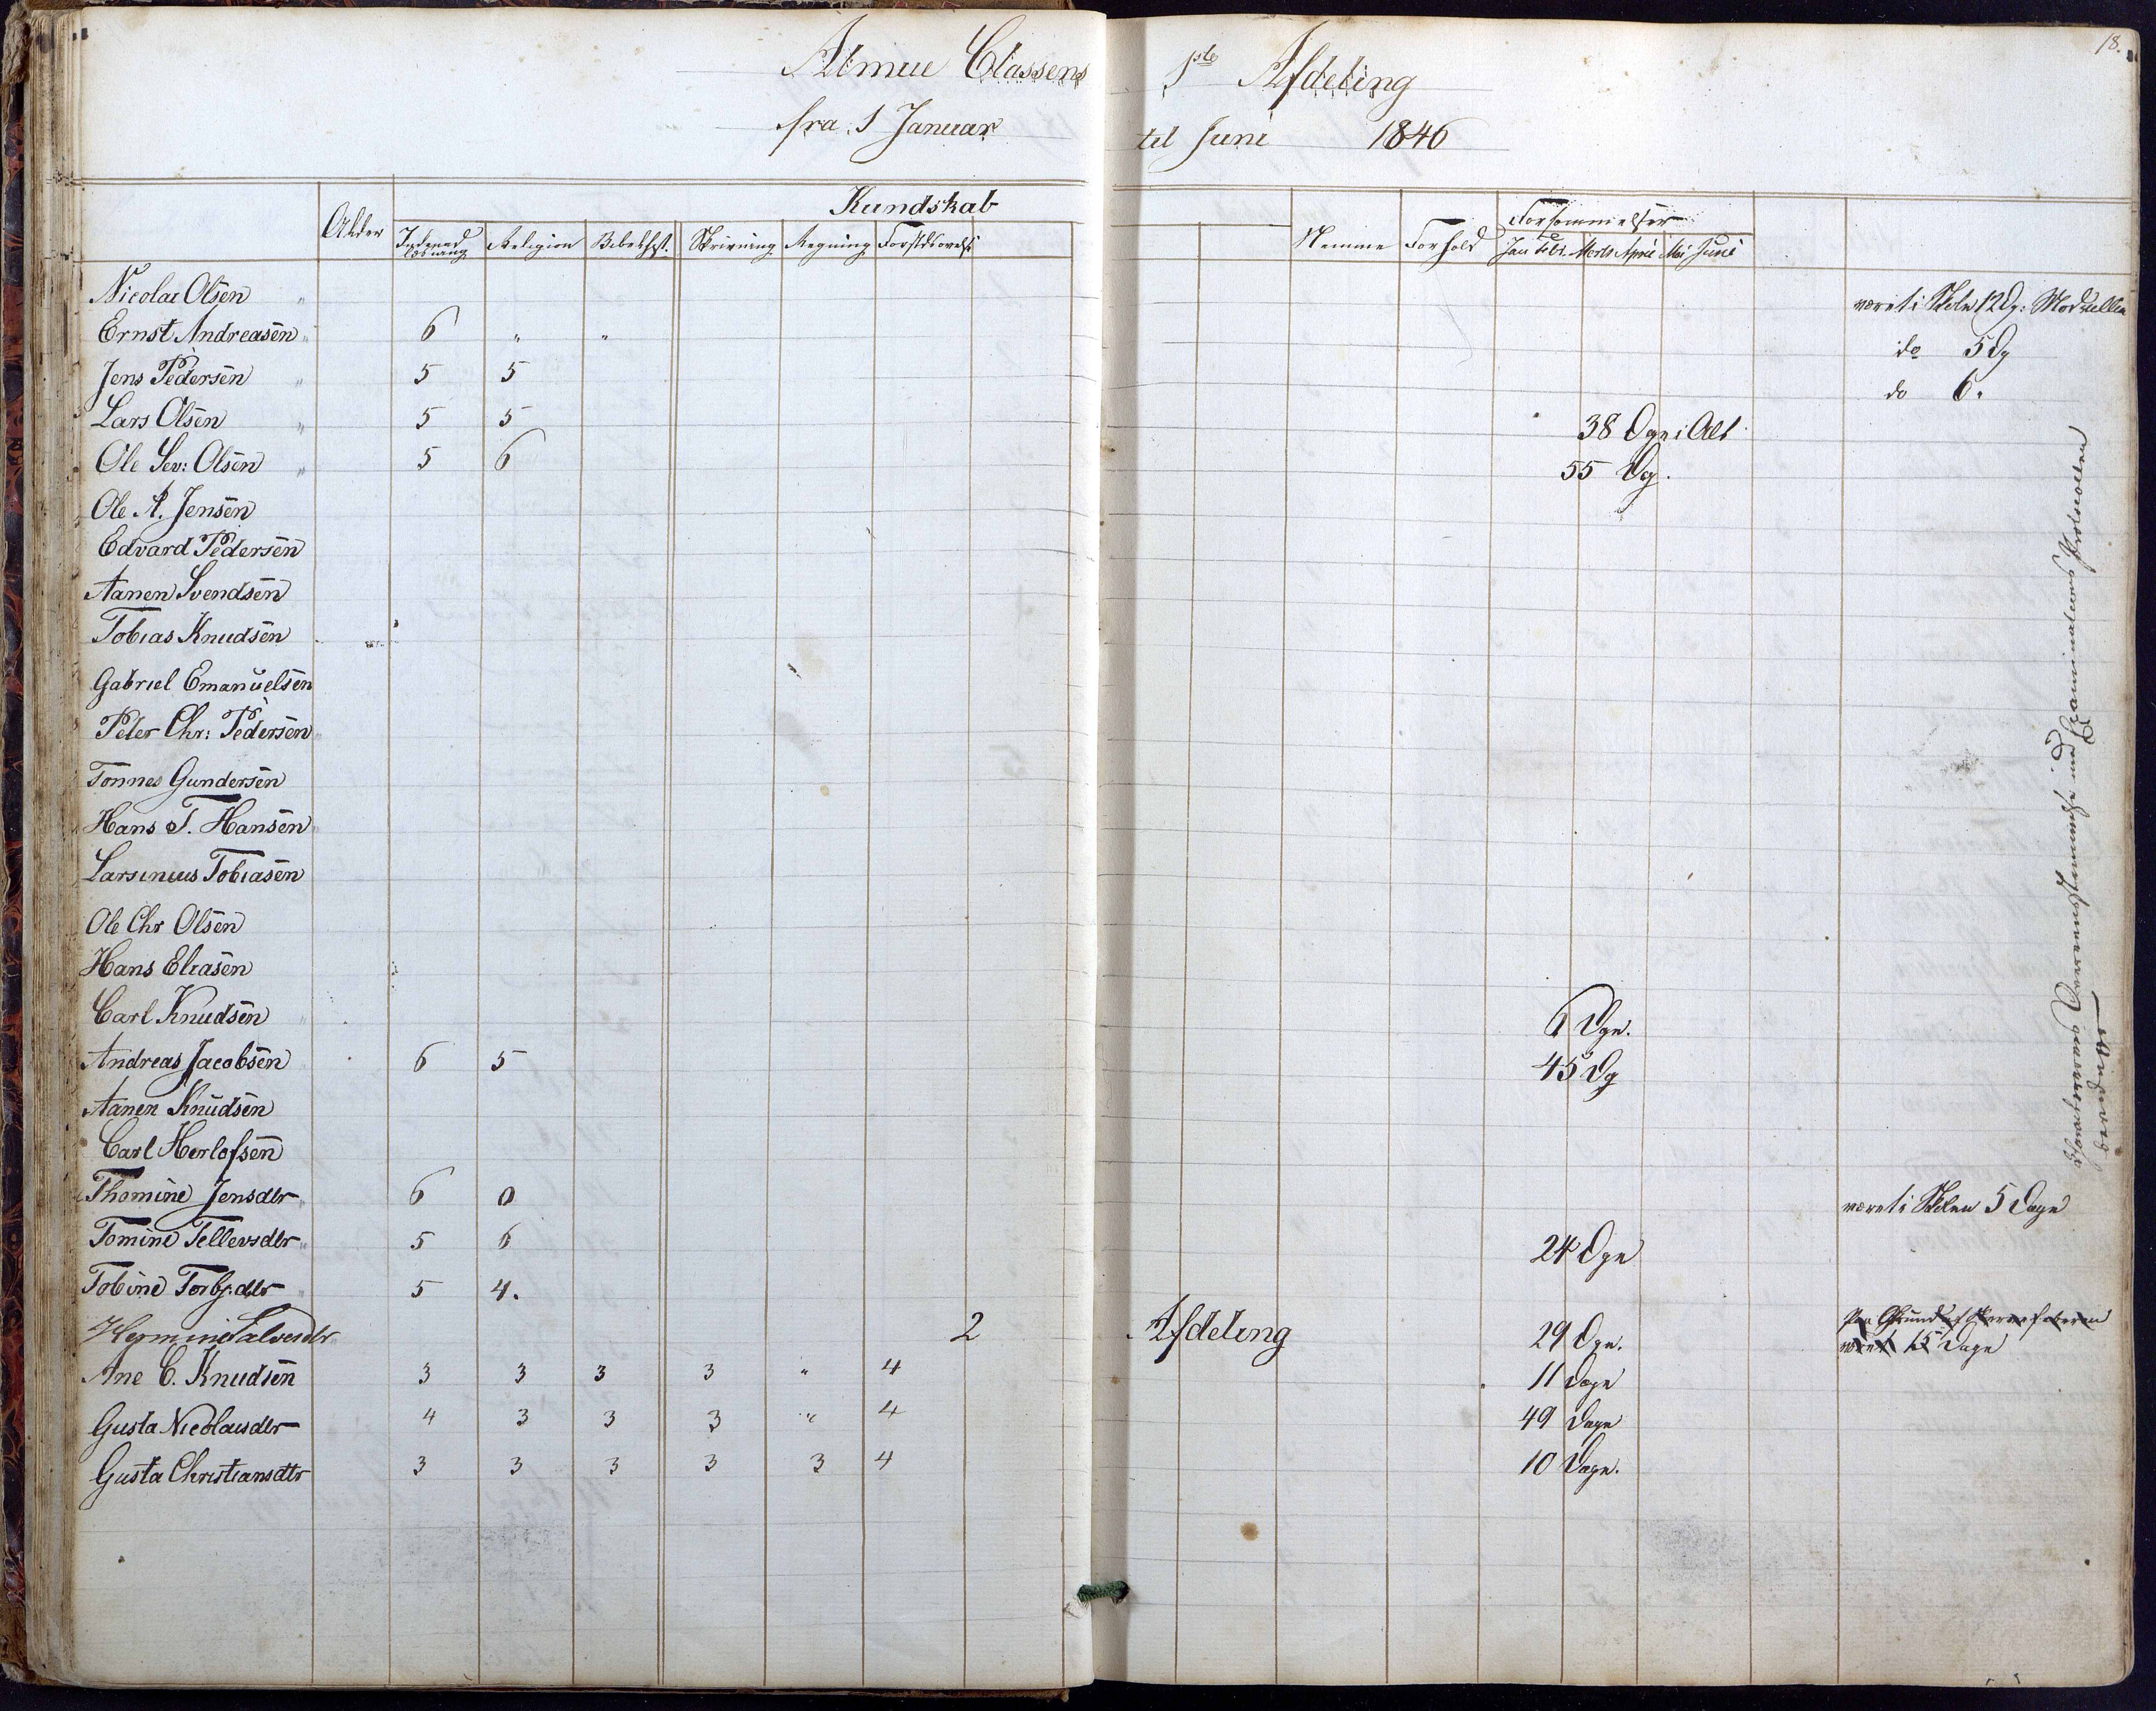 18.
Almue Classens 1ste Afdeling
fra 1 Januar til Juni 1846
Kundskab
Alder Indenad Læsning Religion Bibelhist. Skrivning Regning Forstdsøvelse Nemme Forhold Forsømmelser
Jan Febr. Marts April Mai Juni
Nicolai Olsen " været i Skoln 12 Dg:
Ernst Andreasen " 6 " " do 5 Dg
Jens Pedersen " 5 5 do 6.
Lars Olsen " 5 5 38 Dage i Alt
Ole Sev: Olsen " 5 6 55 Dg.
Ole A. Jensen
Edvard Pedersen
Aanen Svendsen
Tobias Knudsen
Gabriel Emanuelsen
Peter Chr: Pedersen
Tønnes Gundersen
Hans T. Hansen
Larsinius Tobiasen
Ole Chr Olsen
Hans Eliasen
Carl Knudsen " 6 Dge.
Andreas Jacobsen 6 5 45 Dg
Aanen Knudsen
Carl Herlofsen
Thomine Jensdtr 6 0 været i Skolen 5 Dage
Tomine Tellevsdtr " 5 6 24 Dge
Tobine Torbj:dtr 5 4.
Hermine Salvesdtr 2 Afdeling 29 Dge. Paa Grund af
været 15 Dage
Ane C. Knudsen 3 3 3 3 " 4 11 Dage
Gusta Nicolaisdtr 4 3 3 3 " 4 49 Dage
Gusta Christiansdtr 3 3 3 3 3 4 10 Dage.
Overeensstemmelse med Examinations Protocollen